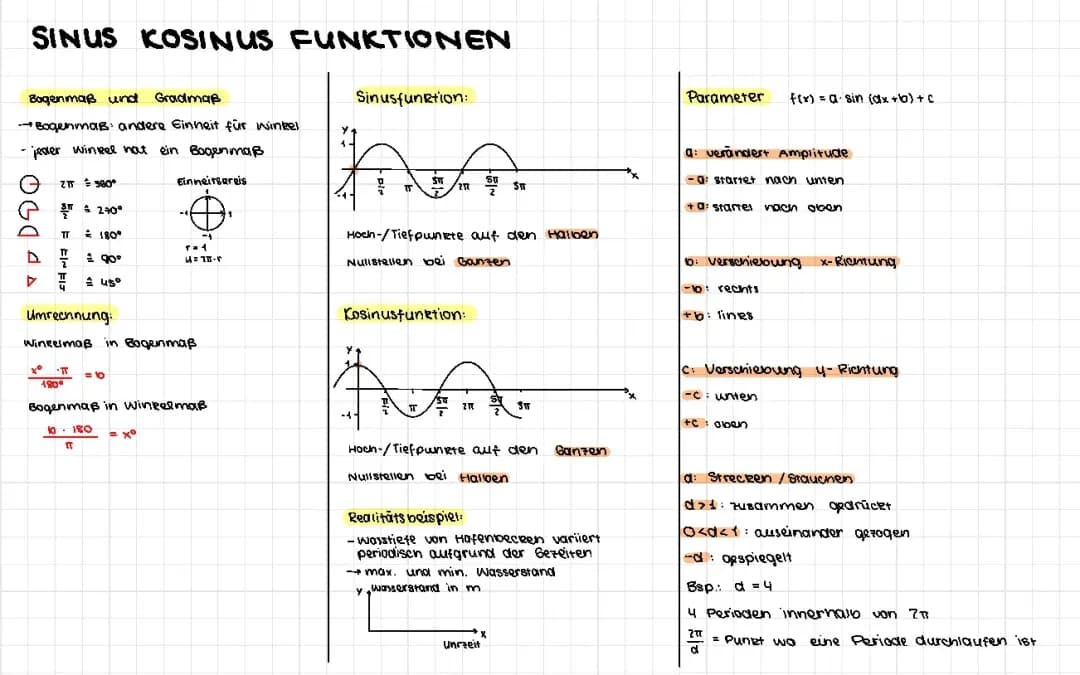 SINUS KOSINUS FUNKTIONEN
Bogenmaß und Gradmaß
→ Bogenmaß: andere Einheit für Winkel
- jeder Winkel hat ein Bogenmaß
2π ≙ 360°
3π/2 ≙ 270°
π ≙ 180°
π/2 ≙ 90°
π/4 ≙ 45°
Einheitskreis
-1 1
-1
r = 1
Umrechnung:
Winkelmaß in Bogenmaß
x° · π / 180° = b
Bogenmaß in Winkelmaß
b · 180 / π = x°
Sinusfunktion:
y
1
-1
π/2 π 3π/2 2π 5π/2 3π
x
Hoch-/Tiefpunkte auf den Halben
Nullstellen bei Ganzen
Kosinusfunktion:
y
1
-1
π/2 π 3π/2 2π 5π/2 3π
x
Hoch-/Tiefpunkte auf den Ganzen
Nullstellen bei Halben
Realitätsbeispiel:
- Wasstiefe von Hafenbecken variiert
periodisch aufgrund der Gezeiten
→ max. und min. Wasserstand
y Wasserstand in m
x
Uhrzeit
Parameter f(x) = a · sin (dx+b) + c
a: verändert Amplitude
-a: startet nach unten
+a: startet nach oben
b: Verschiebung x-Richtung
-b: rechts
+b: links
c: Verschiebung y-Richtung
-c: unten
+c: oben
d: Strecken / Stauchen
d>1: zusammen gedrückt
0<d<1: auseinander gezogen
-d: gespiegelt
Bsp.: d = 4
4 Perioden innerhalb von 2π
2π/d = Punkt wo eine Periode durchlaufen ist